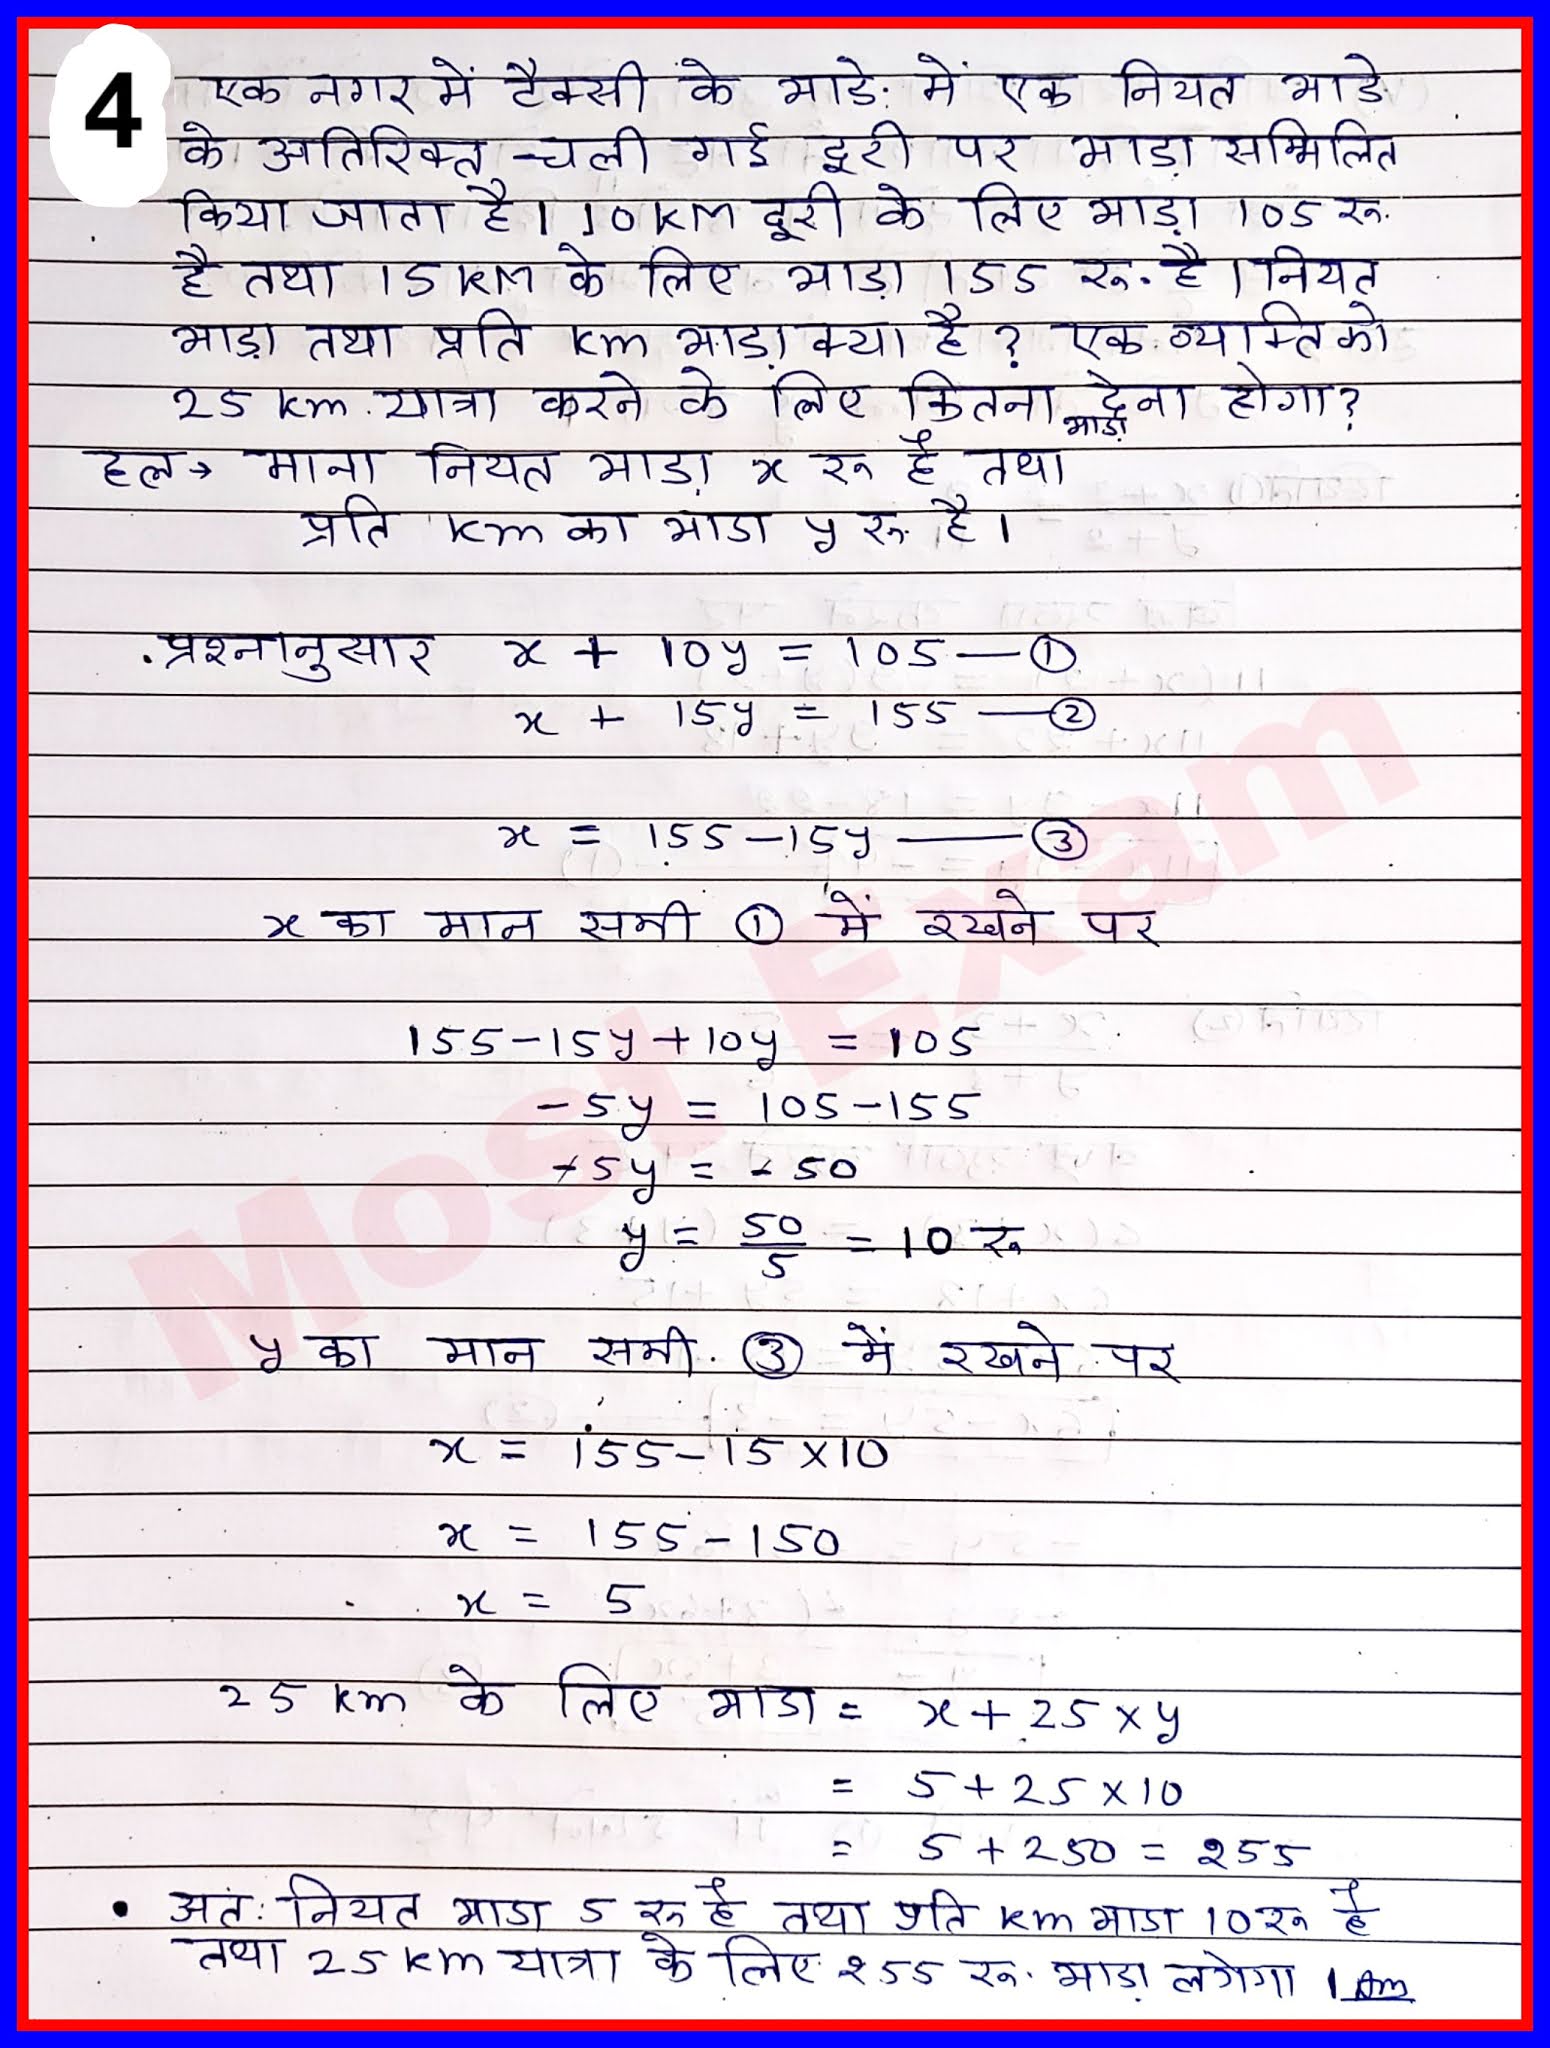 4
एक नगर में टैक्सी के भाडे. में एक नियत भाडे
के अतिरिक्त चली गई दूरी पर भाड़ा सम्मिलित
किया जाता है। 10 km दूरी के लिए भाड़ा 105 रू.
है तथा 15 km के लिए भाड़ा 155 रू. है। नियत
भाड़ा तथा प्रति km भाड़ा क्या है? एक व्यक्ति को
25 km यात्रा करने के लिए कितना भाड़ा देना होगा?
हल → माना नियत भाड़ा x रू है तथा
प्रति km का भाडा y रू. है।
प्रश्नानुसार x + 10y = 105 — ①
x + 15y = 155 — ②
x = 155 - 15y — ③
x का मान समी ① में रखने पर
155 - 15y + 10y = 105
- 5y = 105 - 155
- 5y = - 50
y = 50/5 = 10 रू
y का मान समी. ③ में रखने पर
x = 155 - 15 × 10
x = 155 - 150
x = 5
25 km के लिए भाडा = x + 25 × y
= 5 + 25 × 10
= 5 + 250 = 255
• अत: नियत भाडा 5 रू है तथा प्रति km भाडा 10 रू है
तथा 25 km यात्रा के लिए 255 रू. भाड़ा लगेगा। Ans
Most Exam